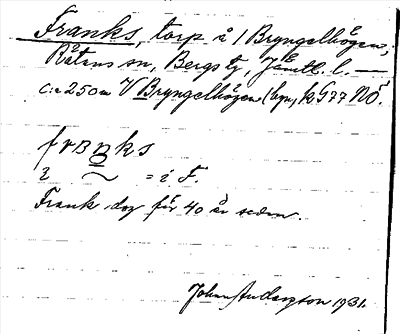 Franks, torp å 1 Bryngelhögen,
Rätans sn, Bergs tg, Jämtl. l. —
C:a 250 m V Bryngelhögen (byn, k G77 NÖ.
frɑŋks
i ~ = i F.
Frank dog för 40 år sedan.
Johan Anderzson 1931.